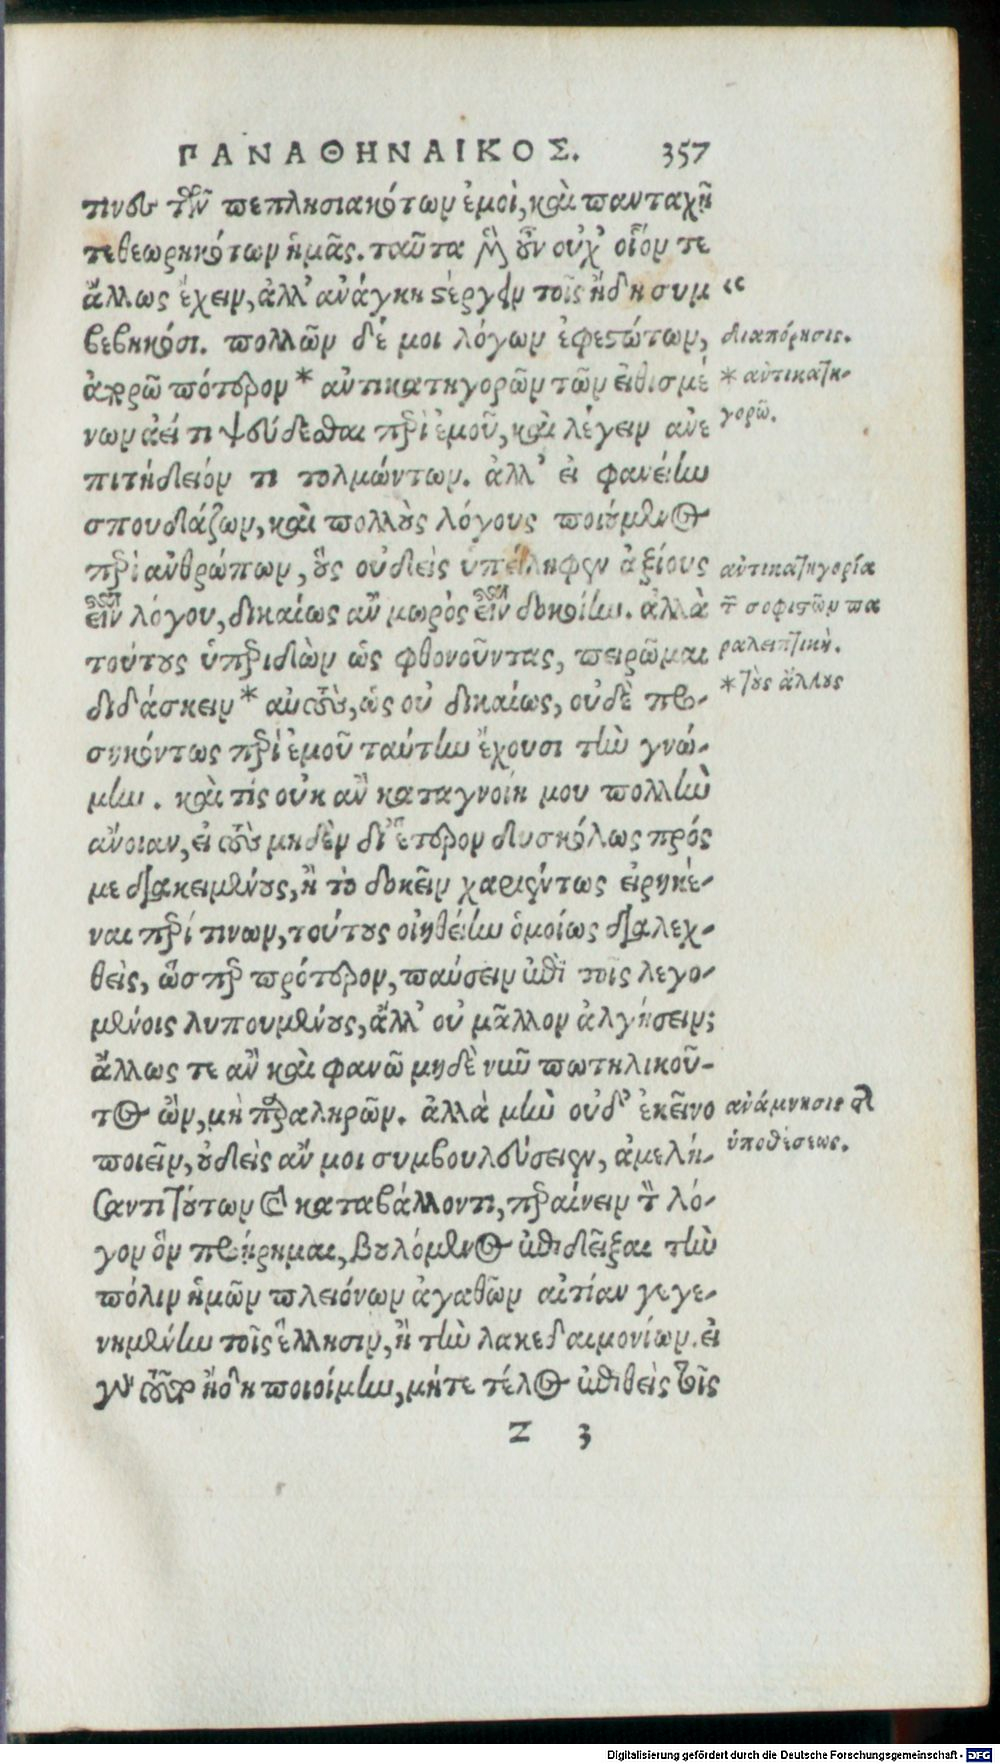 ΠΑΝΑΘΗΝΑΙΚΟΣ. 357
τινων τῶν πεπλησιακότων ἐμοὶ, καὶ πανταχῇ
τεθεωρηκότων ἡμᾶς. ταῦτα μὲν οὖν οὐχ᾽ οἷόν τε
ἄλλως ἔχειν, ἀλλ᾽ ἀνάγκη στέργειν τοῖς ἤδη συμ “
βεβηκόσι. πολλῶν δέ μοι λόγων ἐφεστώτων, διαπόρησις.
ἀπορῶ πότερον * ἀντικατηγορῶν τῶν εἰθισμέ * ἀντικατη-
γορῶ.
νων ἀεί τι ψεύδεσθαι περὶ ἐμοῦ, καὶ λέγειν ἀνε
πιτήδειόν τι τολμώντων. ἀλλ᾽ εἰ φανείην
σπουδάζων, καὶ πολλοὺς λόγους ποιούμενος
περὶ ἀνθρώπων, οὓς οὐδεὶς ὑπείληφεν ἀξίους ἀντικατηγορία
εἶναι λόγου, δικαίως ἂν μωρὸς εἶναι δοκοίην. ἀλλὰ τῶν σοφιστῶν πα
τούτους ὑπεριδὼν ὡς φθονοῦντας, πειρῶμαι ραλειπτική.
διδάσκειν * αὐτοὺς, ὡς οὐ δικαίως, οὐδὲ προ- * τοὺς ἄλλους
σηκόντως περὶ ἐμοῦ ταύτην ἔχουσι τὴν γνώ-
μην. καὶ τίς οὐκ ἂν καταγνοίη μου πολλὴν
ἄνοιαν, εἰ τοὺς μηδὲν δι᾽ ἕτερον δυσκόλως πρός
με διακειμένους, ἢ τὸ δοκεῖν χαριέντως εἰρηκέ-
ναι περί τινων, τούτους οἰηθείην ὁμοίως διαλεχ-
θεὶς, ὥσπερ πρότερον, παύσειν ἐπὶ τοῖς λεγο-
μένοις λυπουμένους, ἀλλ᾽ οὐ μᾶλλον ἀλγήσειν;
ἄλλως τε ἂν καὶ φανῶ μηδὲ νῦν πω τηλικοῦ-
τος ὢν, μὴ παραληρῶν. ἀλλὰ μὴν οὐδ᾽ ἐκεῖνο ἀνάμνησις τῆς
ποιεῖν, οὐδεὶς ἄν μοι συμβουλεύσειεν, ἀμελή- ὑποθέσεως.
σαντι τούτων καὶ καταβάλλοντι, περαίνειν τὸν λό-
γον ὃν προῄρημαι, βουλόμενος ἐπιδεῖξαι τὴν
πόλιν ἡμῶν πλειόνων ἀγαθῶν αἰτίαν γεγε-
νημένην τοῖς ἕλλησιν, ἢ τὴν λακεδαιμονίων. εἰ
γὰρ τοῦτο ἤδη ποιοίμην, μήτε τέλος ἐπιθεὶς τοῖς
Z 3
Digitalisierung gefördert durch die Deutsche Forschungsgemeinschaft - DFG